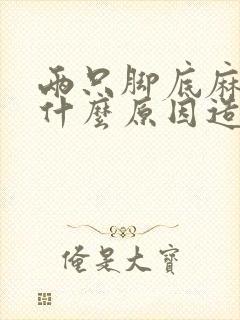 兩只腳底麻
什麼原因造
俺是大寶